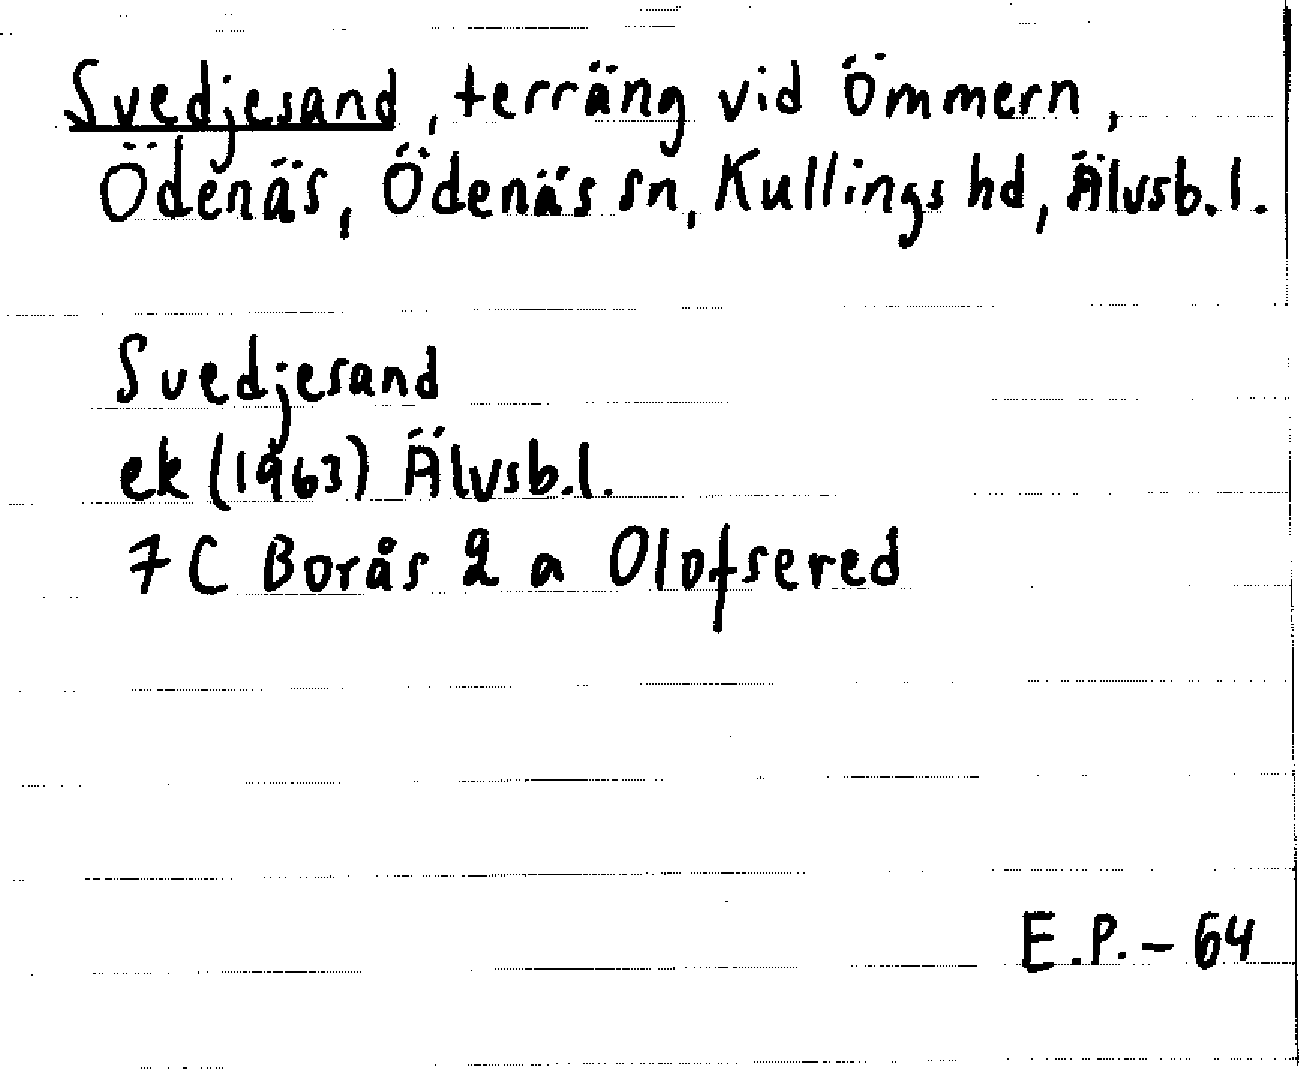 Svedjesand, terräng vid Ömmern,
Ödenäs, Ödenäs sn, Kullings hd, Älvsb. l.
Svedjesand
ek (1963) Älvsb. l.
7 C Borås 2 a Olofsered
E. P. - 64